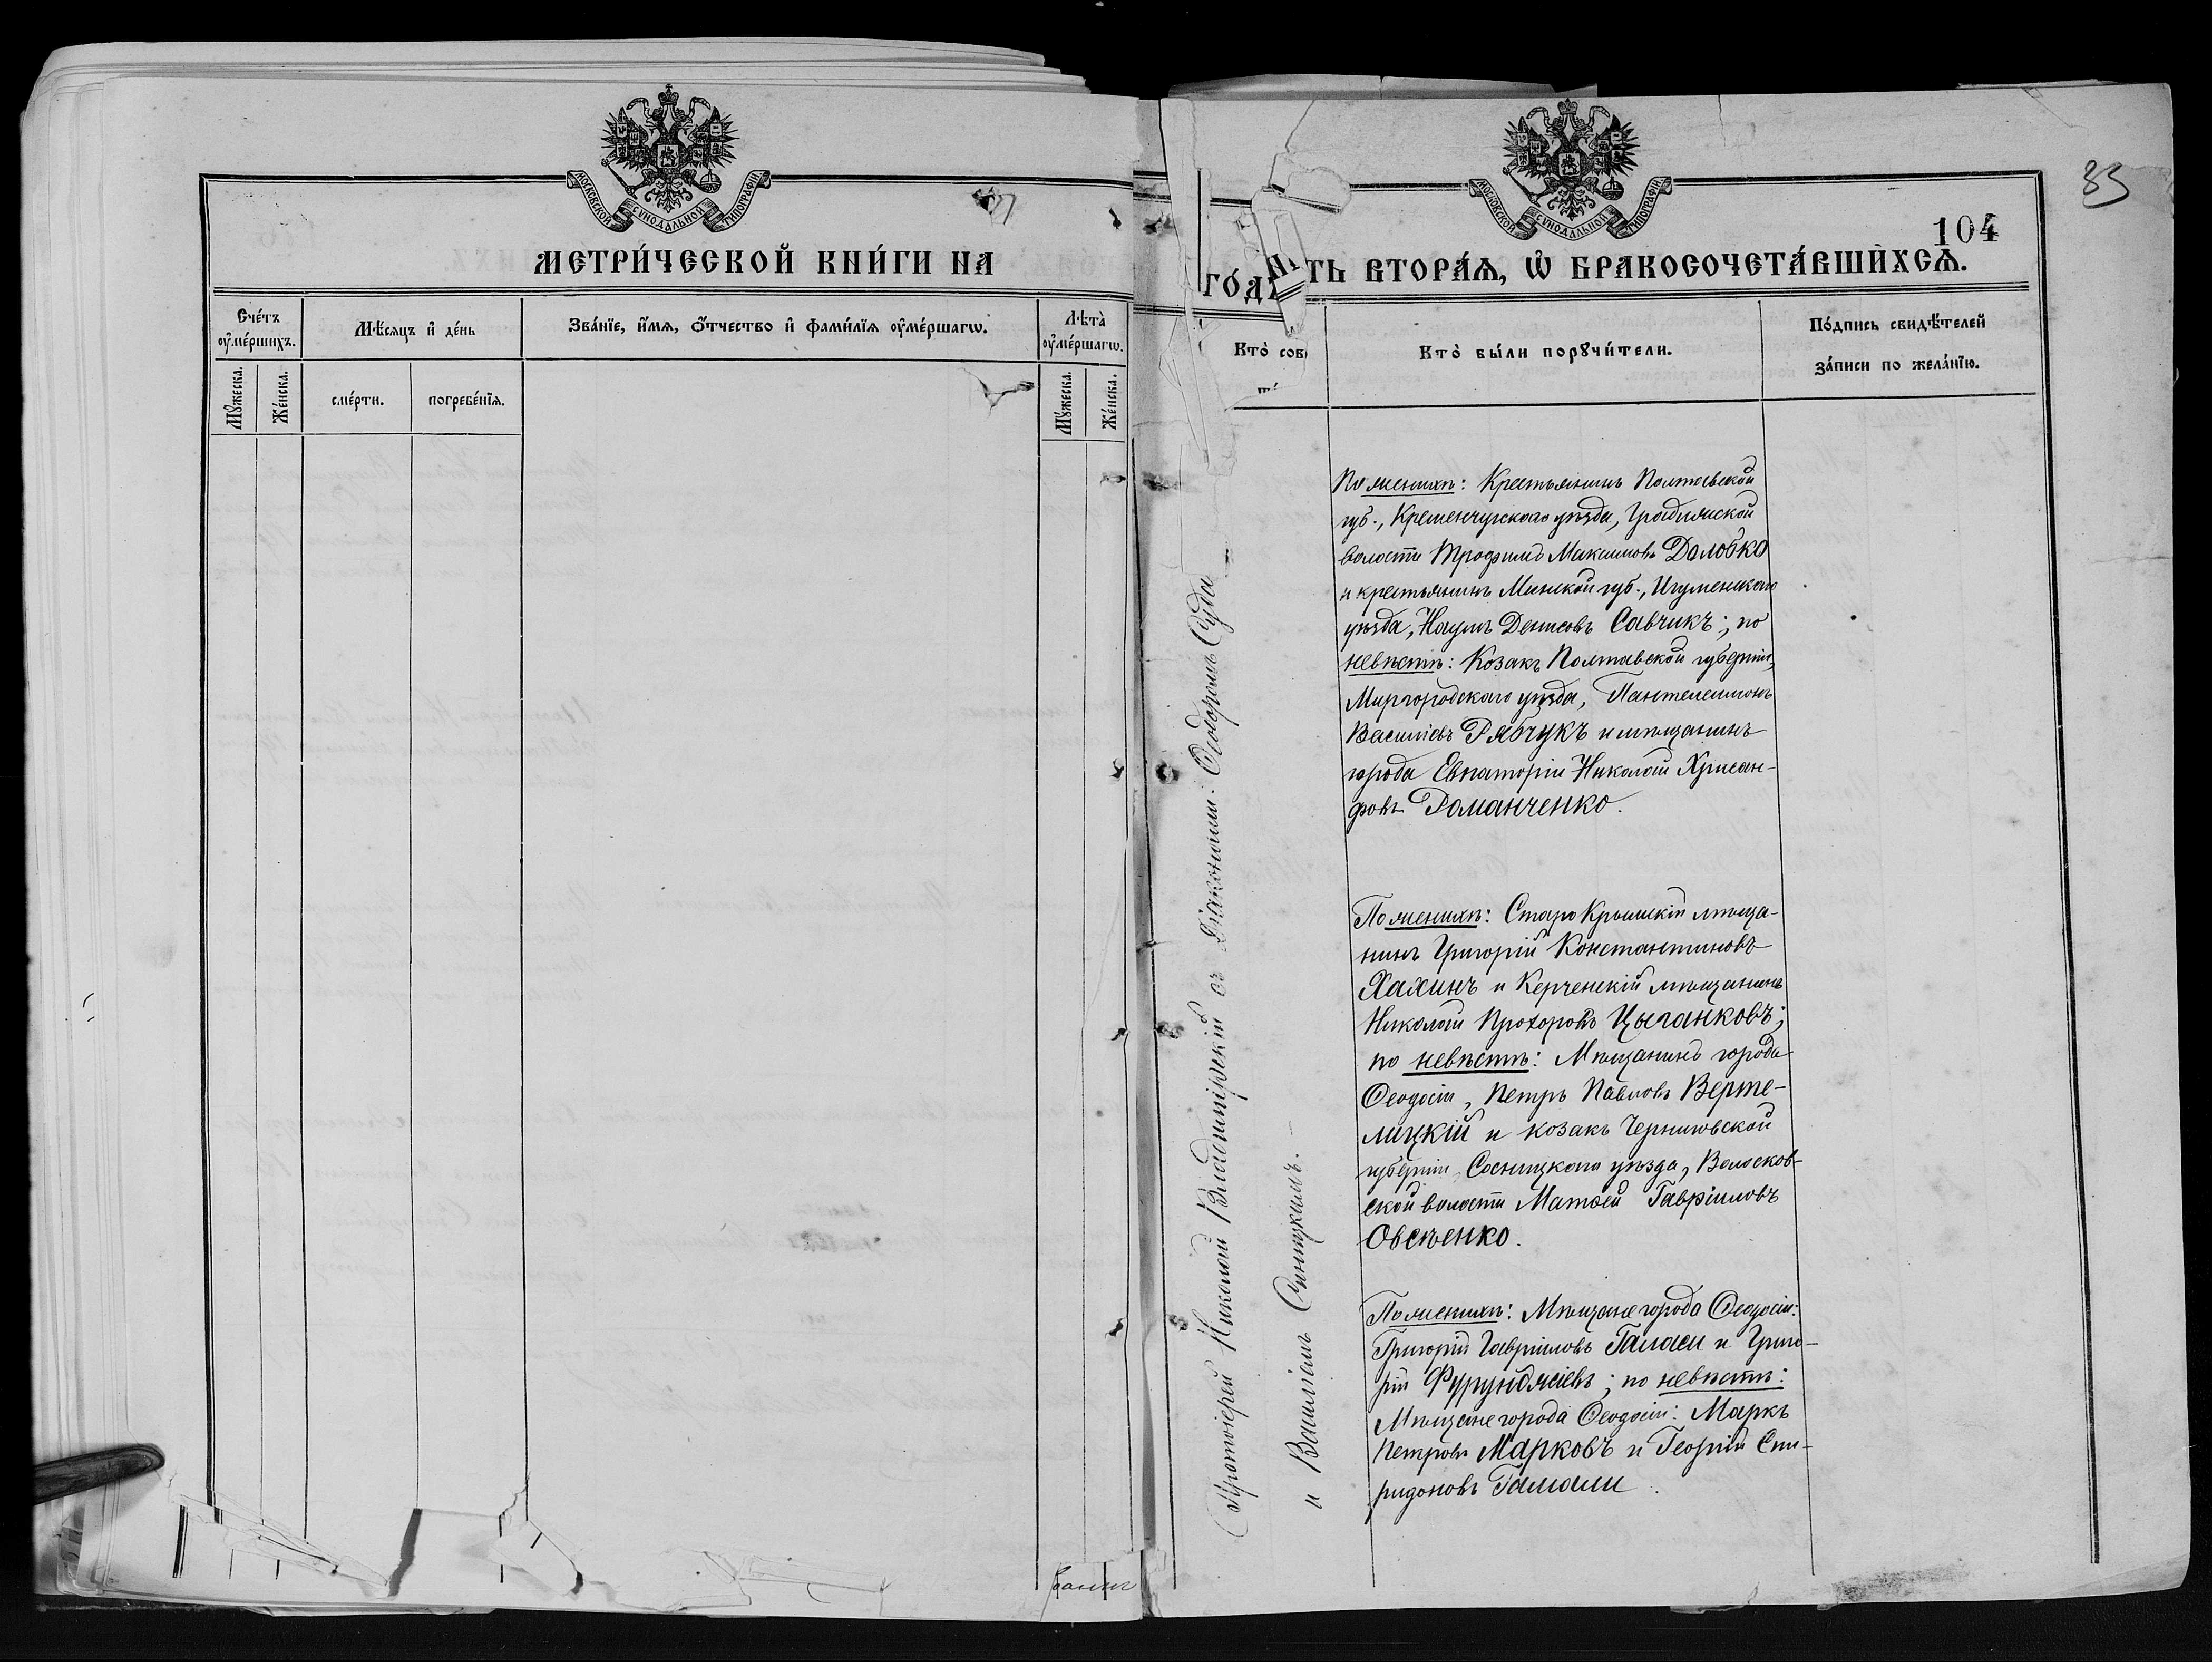 МОСКОВСКОЙ СУНОДАЛЬНОЙ ТИПОГРАФІИ
МЕТРИ́ЧЕСКОЙ КНИ́ГИ НА
Счéтъ ᲂу҆мéршихъ.
Мѣ́сяцъ и҆ дéнь
Звáнїе, и҆́мя, ѻ҆́тчество и҆ фами́лїя ᲂу҆мéршагѡ.
Лѣтà ᲂу҆мéршагѡ.
Мꙋ́жеска.
Жéнска.
смéрти.
погребéнїя.
Мꙋ́жеска.
Жéнска.
33
МОСКОВСКОЙ СУНОДАЛЬНОЙ ТИПОГРАФІИ
104
ГÓД
ТЬ ВТОРА́Я, Ѡ҆ БРАКОСОЧЕТА́ВШИХСЯ.
Ктò сов
Ктò бы́ли порꙋчи́тели.
Пóдпись свидѣ́телей
зáписи по желáнїю.
Протоіерей Николай Владимірскій съ Діакономъ Ѳеодоромъ
и Василіемъ Синицкимъ.
По женихѣ: Крестьянинъ Полтавской
губ., Кременчугскаго уѣзда, Градижской
волости Трофимъ Максимовъ Долобко
и крестьянинъ Минской губ., Игуменскаго
уѣзда, Наумъ Денисовъ Савчикъ; по
невѣстѣ: Козакъ Полтавской губерніи,
Миргородскаго уѣзда, Пантелеимонъ
Василіевъ Рябчукъ и мѣщанинъ
города Евпаторіи Николай Хрисан-
фовъ Романченко.
По женихѣ: СтароКрымскій мѣща-
нинъ Григорій Константиновъ
Хахинъ и Керченскій мѣщанинъ
Николай Прохоровъ Цыганковъ;
по невѣстѣ: Мѣщанинъ города
Ѳеодосіи, Петръ Павловъ Верте-
лицкій и козакъ Черниговской
губерніи Сосницкаго уѣзда, Волосков-
ской волости Матѳей Гавріиловъ
Овсѣенко.
По женихѣ: Мѣщане города Ѳеодосіи:
Григорій Гавріиловъ Галаси и Григо-
рій Фурунджіевъ; по невѣстѣ:
Мѣщане города Ѳеодосіи: Маркъ
Петровъ Марковъ и Георгій Спи-
ридоновъ Гамали.